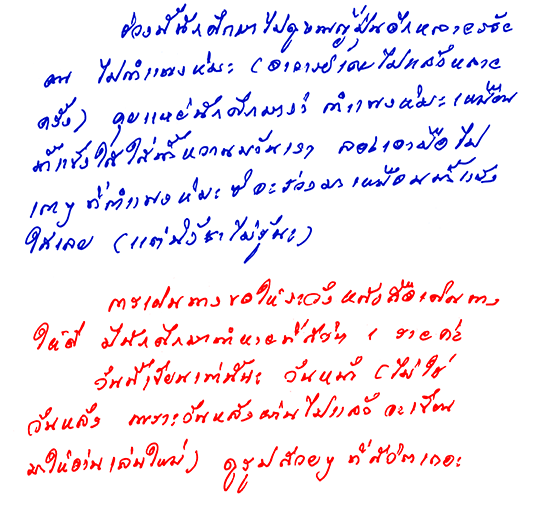 ช่วงนี้นักศึกษาไปดูงานญี่ปุ่นอีกหลายร้อย
คน ไปกำแพงหิมะ (อาจารย์เคยไปแล้วหลาย
ครั้ง) คุยแหย่นักศึกษาว่า กำแพงหิมะเหมือน
น้ำแข็งใสใส่น้ำหวานบ้านเรา ลองเอามือไป
เกาๆ ที่กำแพงหิมะ จะร่วงมาเหมือนน้ำแข็ง
ใสเลย (แต่นั่ง ไม่รู้นะ)
การเดินทางขอให้ระวังหนังสือเดินทาง
ให้ดี มีนักศึกษาทำหายที่สวิส 1 รายค่ะ
วันนี้เขียนเท่านี้นะ วันหน้า (ไม่ใช่
วันหลัง เพราะวันหลังผ่านไปแล้ว จะเขียน
มาให้อ่านเล่นใหม่) ดูรูปสวยๆ ที่สวิตเถอะ